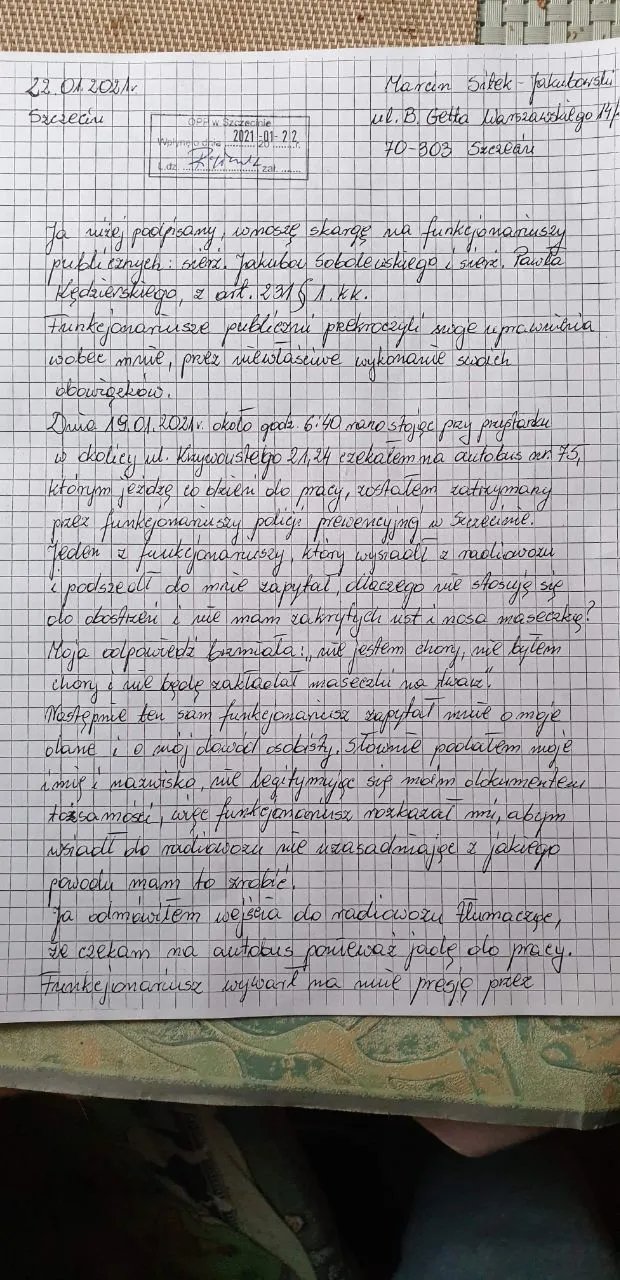 22.01.2021r.
Szczecin
Marcin Sitek-Jakubowski
ul. B. Getta Warszawskiego 14/
70-303 Szczecin
OPP w Szczecinie
Wpłynęło dnia 2021-01-22 r.
L.dz. zał.
Ja niżej podpisany, wnoszę skargę na funkcjonariuszy
publicznych: sierż. Jakuba Sobolewskiego i sierż. Pawła
Kędzierskiego, z art. 231 § 1. kk.
Funkcjonariusze publiczni przekroczyli swoje uprawnienia
wobec mnie, przez niewłaściwe wykonanie swoich
obowiązków.
Dnia 19.01.2021r. około godz. 6:40 rano stojąc przy przystanku
w okolicy ul. Krzywoustego 21,24 czekałem na autobus nr. 75,
którym jeżdżę co dzień do pracy, zostałem zatrzymany
przez funkcjonariuszy policji prewencyjnej w Szczecinie.
Jeden z funkcjonariuszy, który wysiadł z radiowozu
i podszedł do mnie zapytał, dlaczego nie stosuję się
do obostrzeń i nie mam zakrytych ust i nosa maseczką?
Moja odpowiedź brzmiała: „nie jestem chory, nie byłem
chory i nie będę zakładał maseczki na twarz".
Następnie ten sam funkcjonariusz zapytał mnie o moje
dane i o mój dowód osobisty. Słownie podałem moje
imię i nazwisko, nie legitymując się moim dokumentem
tożsamości, więc funkcjonariusz rozkazał mi, abym
wsiadł do radiowozu nie uzasadniając z jakiego
powodu mam to zrobić.
Ja odmówiłem wejścia do radiowozu tłumacząc,
że czekam na autobus ponieważ jadę do pracy.
Funkcjonariusz wywarł na mnie presję przez